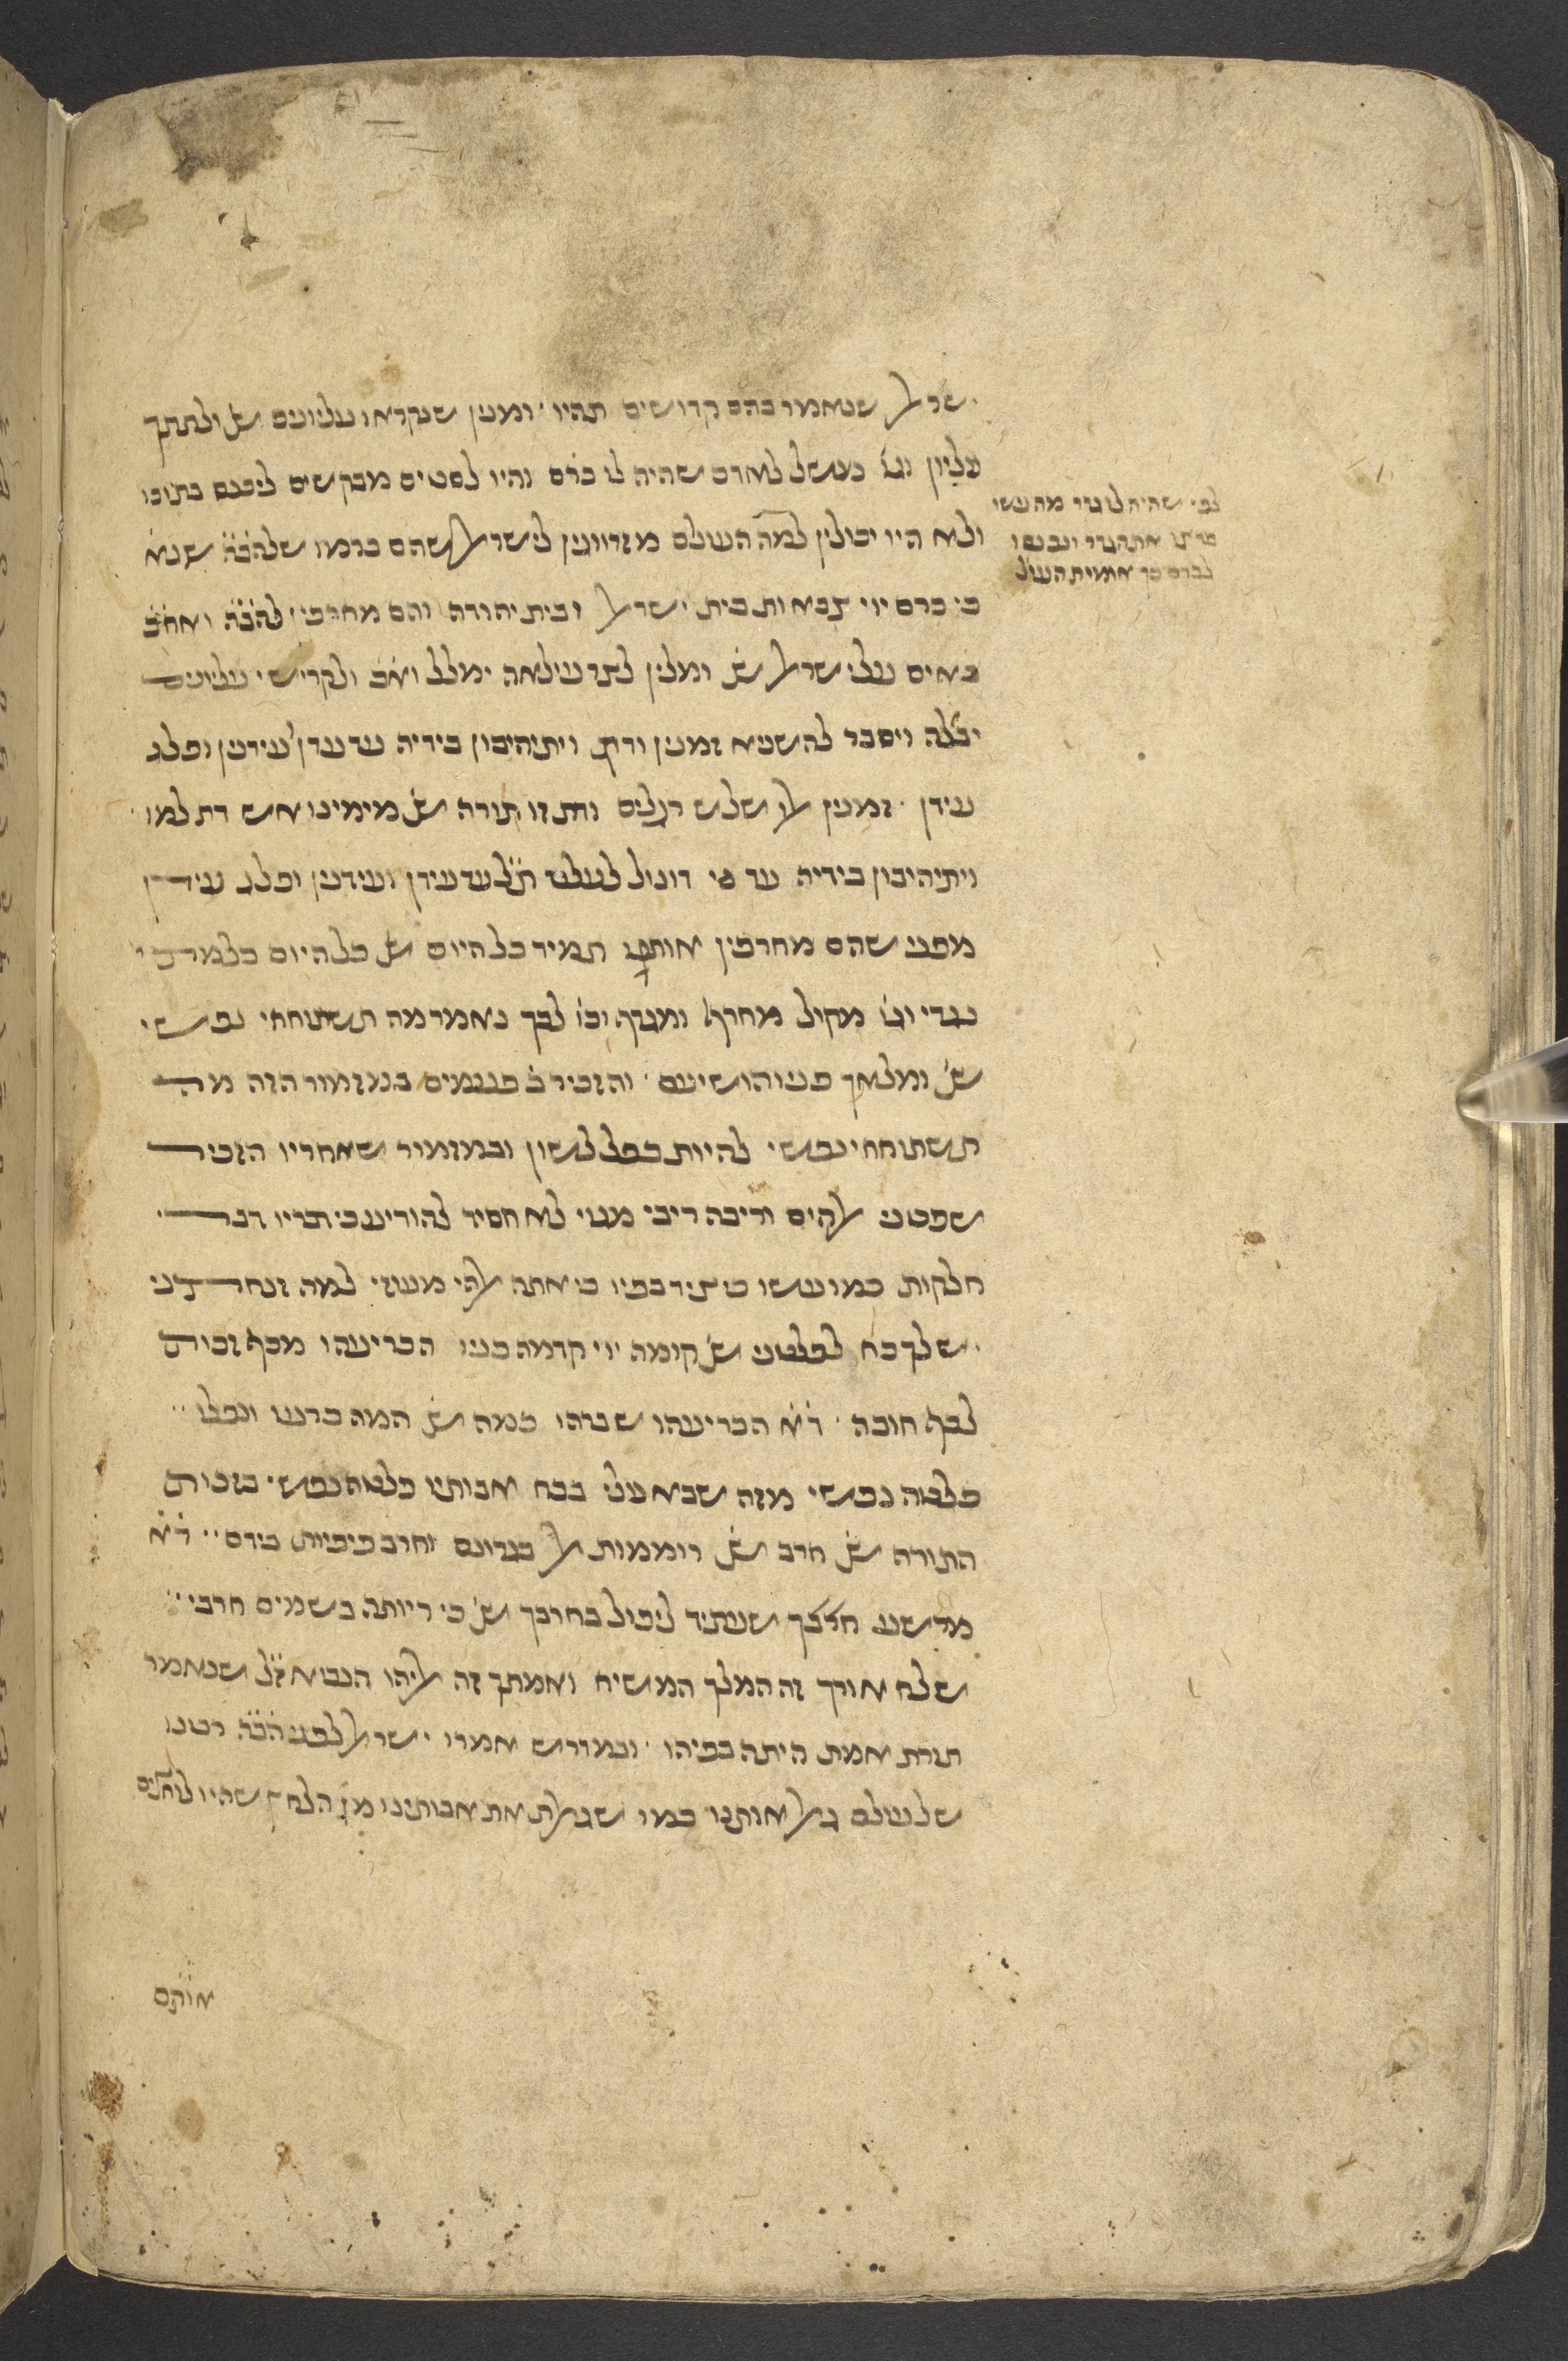 ישראל שנאמר בהם קדושים תהיו ומנין שנקראו עליונים שנ ולתתך
עליון וגו כמשל לאדם שהיה לו כרם והיו לסטים מבקשים ליכנס בתוכו
ולא היו יכולין למה העולם מזדווגין לישראל שהם כרמו שלהקבה שנא
כי כרם ייי צבאות בית ישראל ובית יהודה והם מחרפי להקבה ואחכ
באים על ישראל שנ ומלין לצד עילאה ימלל ואחכ ולקדישי עליונים
יבלה ויסבר להשניא זמנין ודת ויתיהיבון בידיה עד עדן עידנין ופלג
עידן זמנין אלו שלש רגלים ודת זו תורה שנ מימינו אש דת למו
ויתיהיבון בידיה עד עידן ועידנין ופלג עידן
מפני שהם מחרפין אותנו תמיד כל היום שנ כל היום כלמתי
נגדי וגו מקול מחרף ומגדף וכו לכך נאמר מה תשתוחחי נפשי
שנ ומלאך פניו הושיעם והזכיר ב פעמים במזמור הזה מה
תשתוחחי נפשי להיות כפל לשון ובמזמור שאחריו הזכיר
שפטני אלקים וריבה ריבי מגוי לא חסיד להודיע כי תריו דברי
חלקות כמו עשו כי ציד בפיו כי אתה אלהי מעוזי למה זנחתני
שלך בא לפלטני שנ קומה ייי קדמה פניו הכריעהו מכף זכות
לכף חובה דא הכריעהו שברהו כמה שנ המה כרעו ונפלו
פלטה נפשי מזה שבא עלי בכח אבותיו פלטה נפשי בזכות
התורה שנ חרב שנ רוממות אל בגרונם וחרב פיפיות בידם דא
מרשע חרבך שעתיד ליפול בחרבך שנ כי ריותה בשמים חרבי
שלח אורך זה המלך המשיח ואמתך זה אליהו הנביא זל שנאמר
תורת אמת היתה בפיהו ובמדרש אמרו ישראל לפני הקבה רבונו
שלעולם גאל אותנו כמו שגאלת את אבותינו מן הלחץ שהיו לוחצים
אותם
לפי שהיה לו גדר מה עשו
פרצו את הגדר ונכנסו
לכרם כך אומות העול